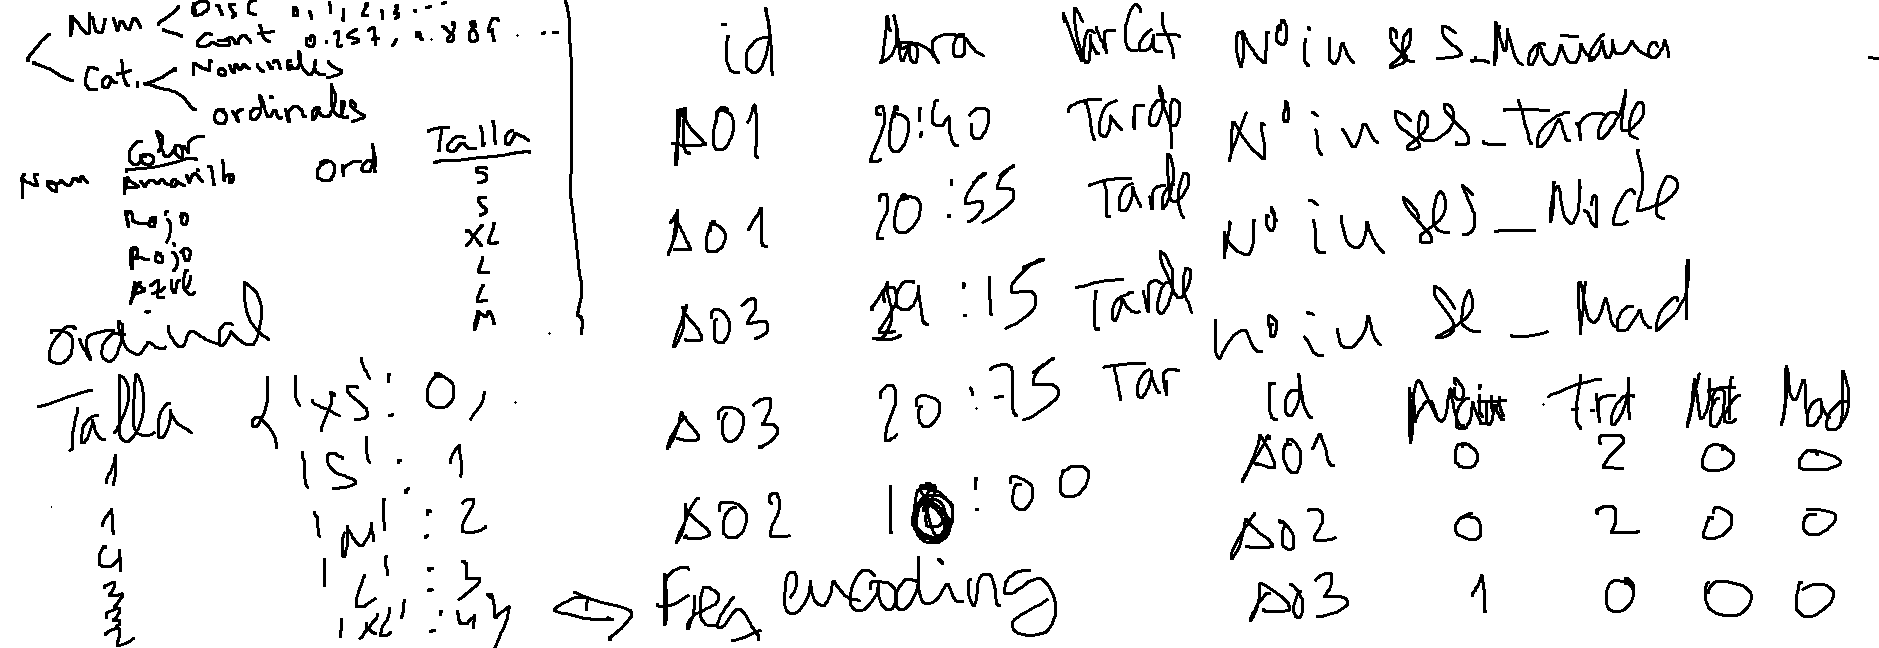 Num Disc 0, 1, 2, 3 ...
Cont 0.257, 0.885 ...
Cat. Nominales
ordinales
Color
Nom Amarillo
Rojo
Rojo
Azul
Ord Talla
S
S
XL
L
L
M
ordinal
Talla {'XS': 0,
1 'S': 1
1 'M': 2
4 'L': 3
3 'XL': 4}
3
2
=> Freq encoding
id Hora VarCat
A01 20:40 Tarde
A01 20:55 Tarde
A03 :15 Tarde
A03 20:75 Tar
A02 :00
Nº in ses_Mañana
Nº in ses_Tarde
Nº in ses_Noche
nº in se_Mad
id Trd Not Mad
A01 0 2 0 0
A02 0 2 0 0
A03 1 0 0 0